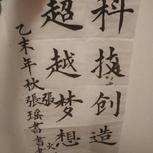 科技创造
超越梦想
乙未年秋張瑤書